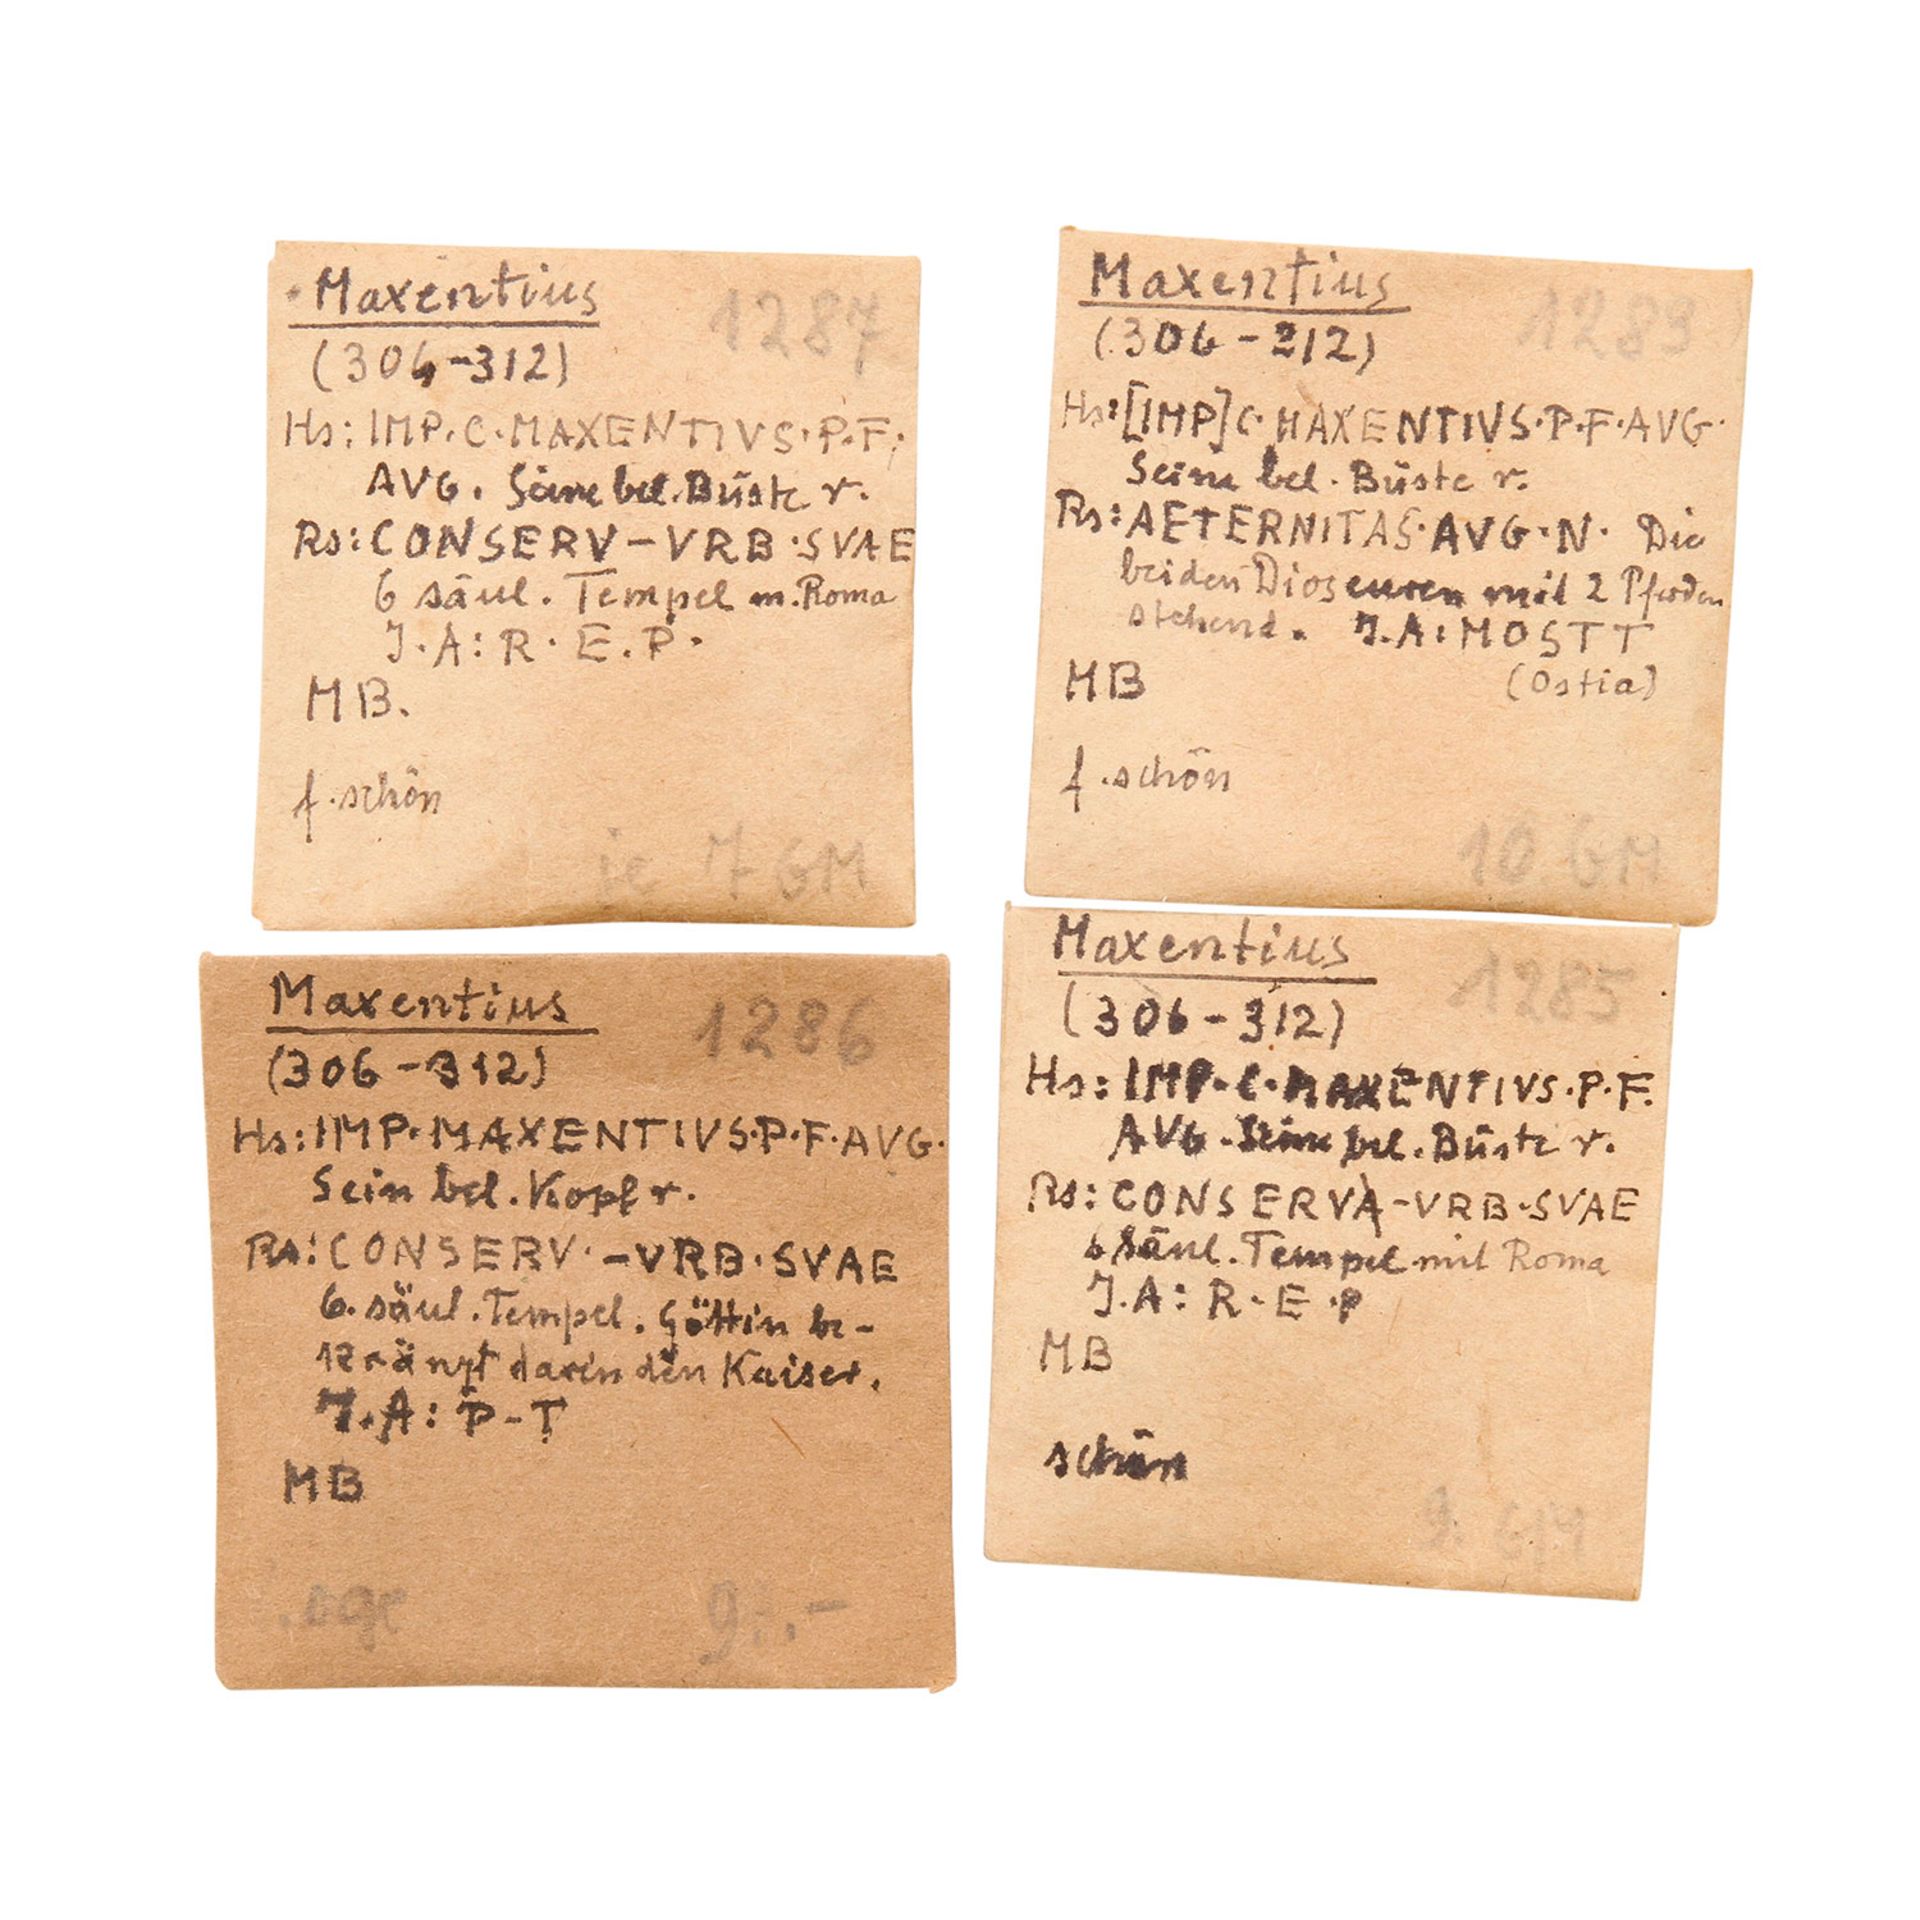 Maxentius 1287
(306-312)
Hs: IMP. C. MAXENTIVS. P. F.
AVG. Seine bel. Büste r.
Rs: CONSERV - VRB. SVAE
6 säul. Tempel m. Roma
J. A: R. E. P.
MB.
f. schön
je 7 GM
Maxentius 1289
(306-212)
Hs: [IMP] C. MAXENTIVS. P. F. AVG.
Seine bel. Büste r.
Rs: AETERNITAS. AVG. N. Die
beiden Dioscuren mit 2 Pferden
stehend. J. A: MOSTT
MB (Ostia)
f. schön
10 GM
Maxentius 1286
(306-312)
Hs: IMP. MAXENTIVS. P. F. AVG.
Sein bel. Kopf r.
Rs: CONSERV. - VRB. SVAE
6. säul. Tempel. Göttin be-
kränzt darin den Kaiser.
J. A: P-T
MB
Maxentius 1285
(306-312)
Hs: IMP. C. MAXENTIVS. P. F.
AVG. Seine bel. Büste r.
Rs: CONSERVA - VRB. SVAE
6 säul. Tempel mit Roma
J. A: R. E. P
MB
schön
9. GM